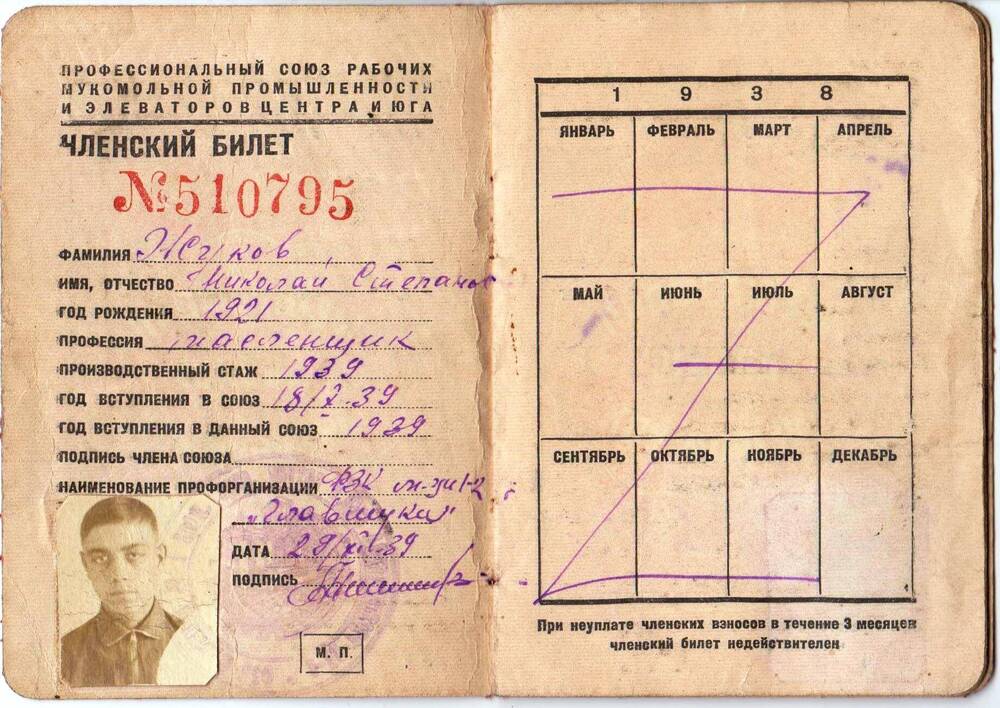 ПРОФЕССИОНАЛЬНЫЙ СОЮЗ РАБОЧИХ
МУКОМОЛЬНОЙ ПРОМЫШЛЕННОСТИ
И ЭЛЕВАТОРОВ ЦЕНТРА И ЮГА
ЧЛЕНСКИЙ БИЛЕТ
№510795
ФАМИЛИЯ Жуков
ИМЯ, ОТЧЕСТВО Николай Степанов
ГОД РОЖДЕНИЯ 1921
ПРОФЕССИЯ масленщик
ПРОИЗВОДСТВЕННЫЙ СТАЖ 1939
ГОД ВСТУПЛЕНИЯ В СОЮЗ 18/X-39
ГОД ВСТУПЛЕНИЯ В ДАННЫЙ СОЮЗ 1939
ПОДПИСЬ ЧЛЕНА СОЮЗА
НАИМЕНОВАНИЕ ПРОФОРГАНИЗАЦИИ ФЗК
"Главмука"
ДАТА 29/XII-39
ПОДПИСЬ
М. П.
1 9 3 8
ЯНВАРЬ ФЕВРАЛЬ МАРТ АПРЕЛЬ
МАЙ ИЮНЬ ИЮЛЬ АВГУСТ
СЕНТЯБРЬ ОКТЯБРЬ НОЯБРЬ ДЕКАБРЬ
При неуплате членских взносов в течение 3 месяцев
членский билет недействителен